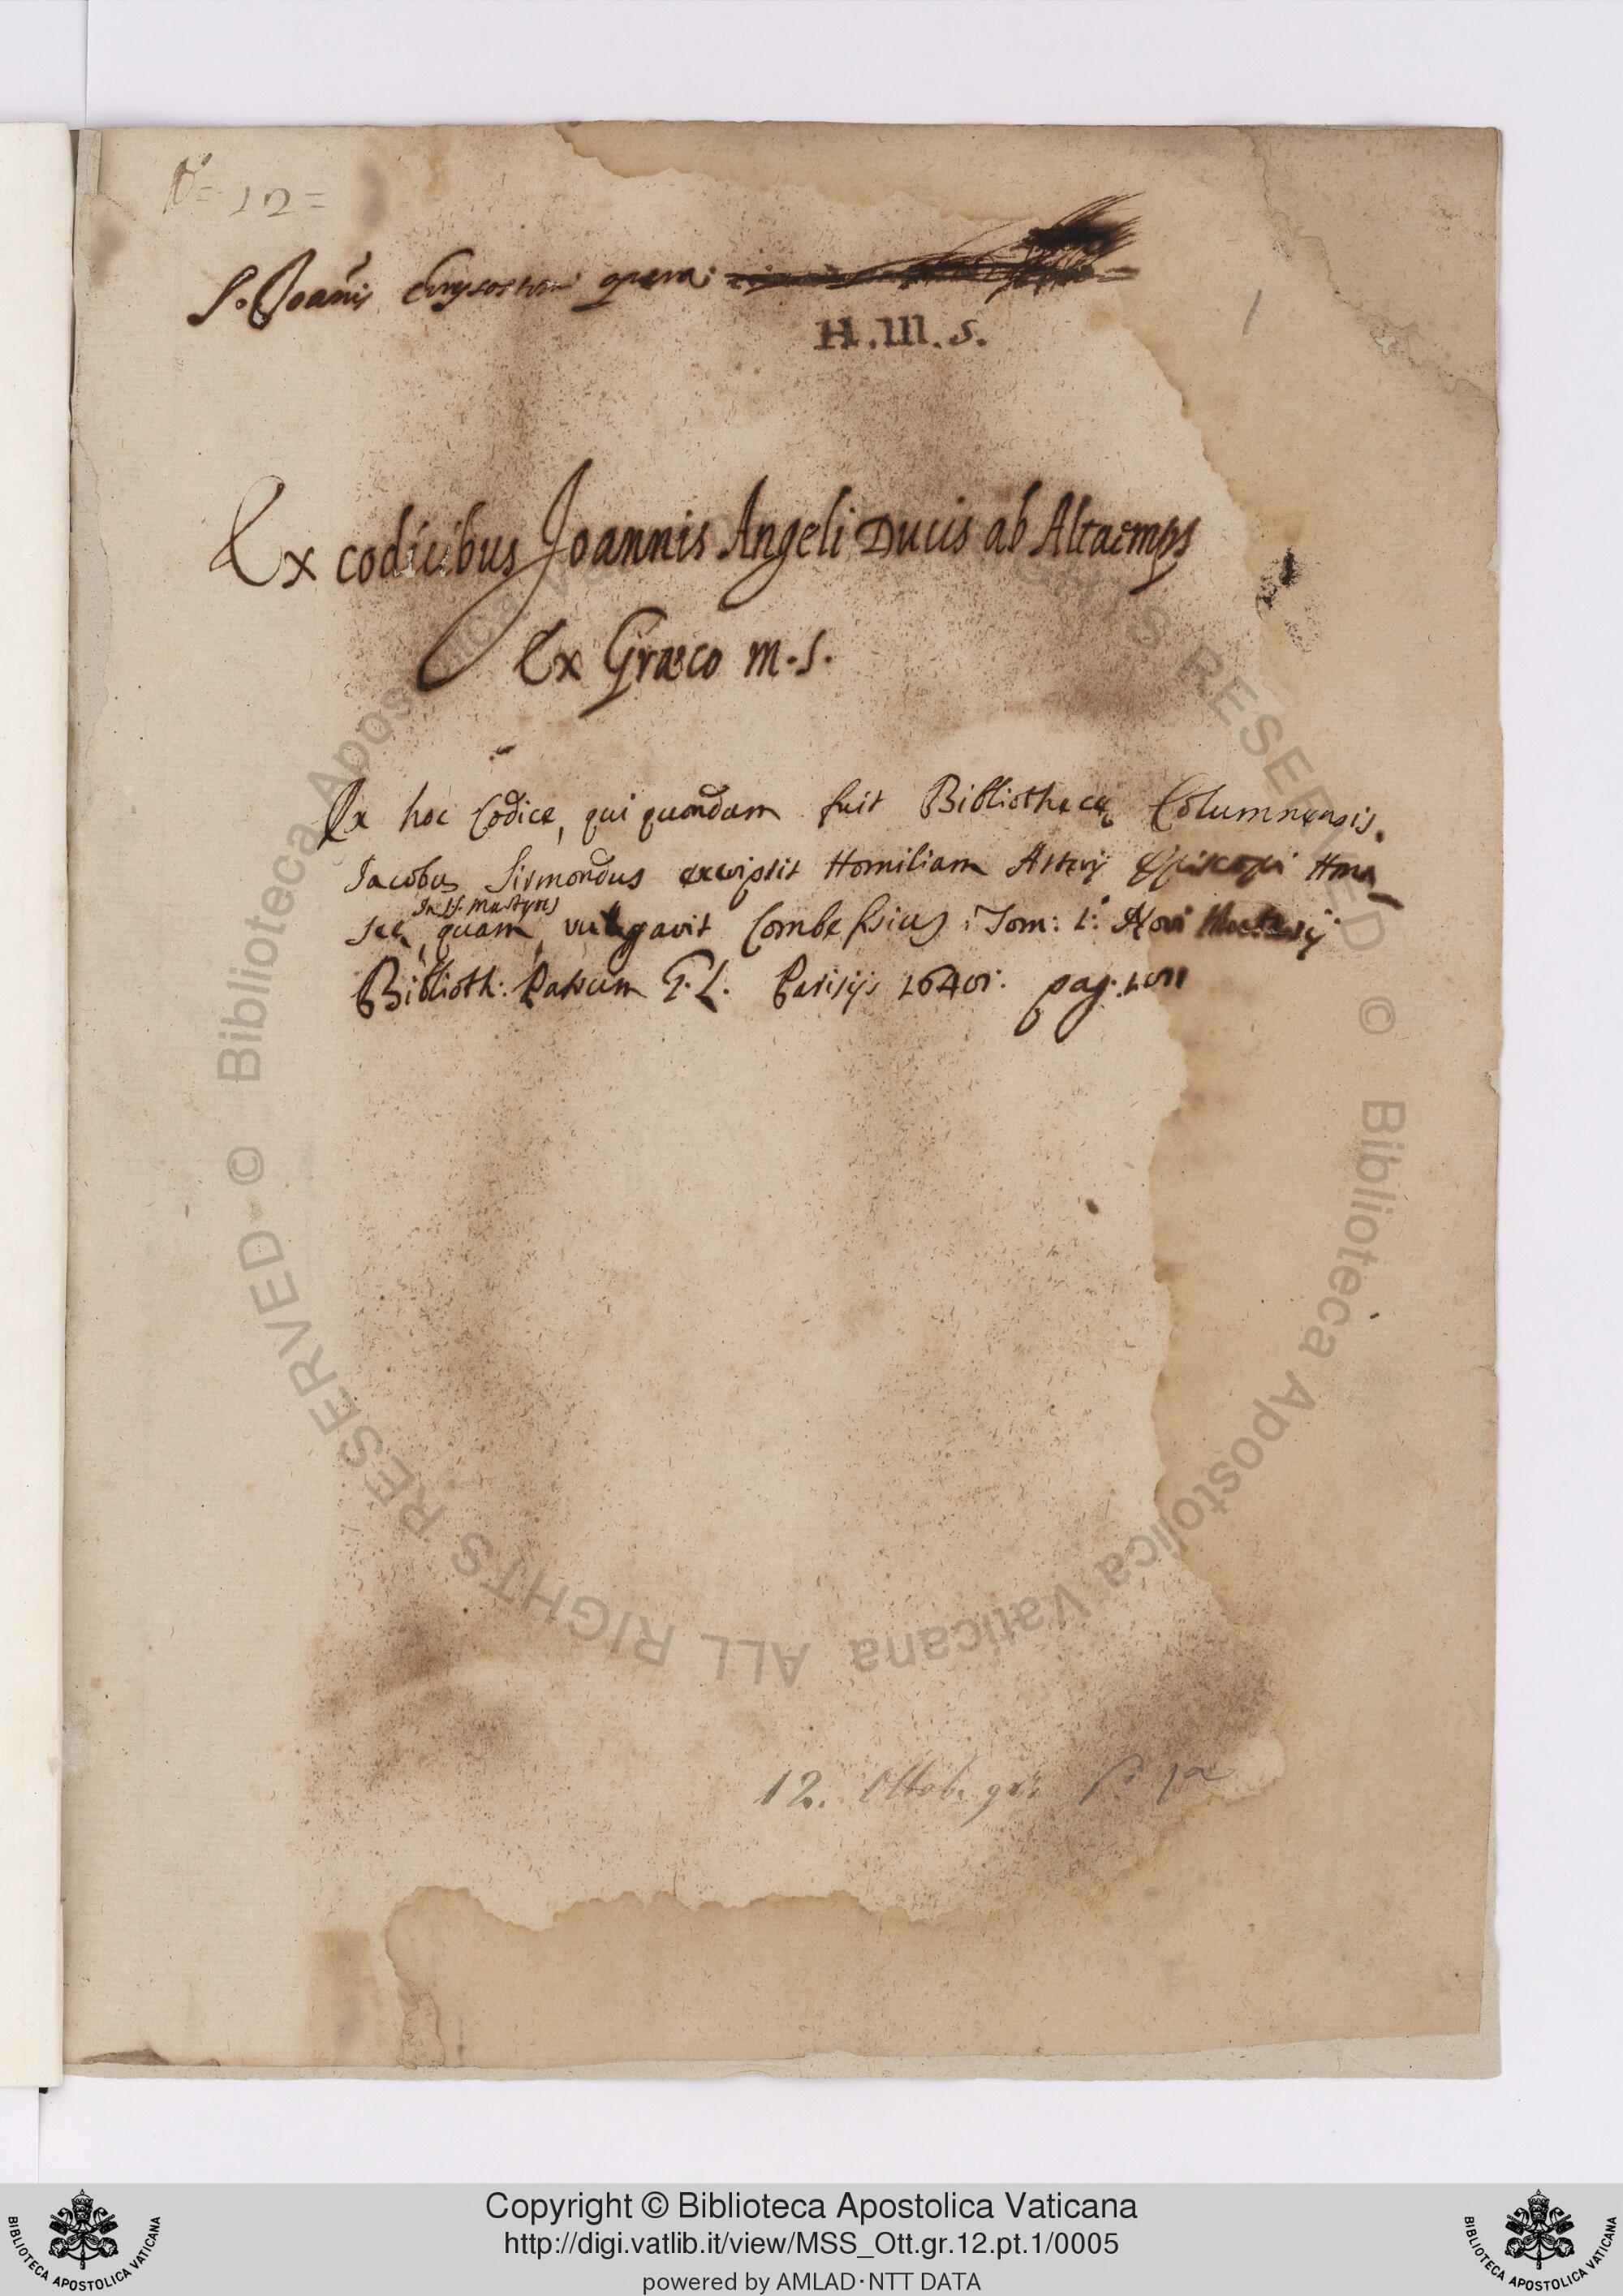 N.º = 12 =
S. Joañis Chrysostomi opera:
1
H.III.5.
Ex codicibus Joannis Angeli Ducis ab Altaemps
Ex Græco m.s.
Ex hoc Codice, qui quondam fuit Bibliothecę Columnensis,
Jacobus Sirmondus excripsit Homiliam Asterij Episcopi Ama_
seę, quam, In SS. Martyres vulgavit Combefisius: Tom: 1.º Novi Auctarij
Biblioth: Patrum G.L. Parisijs 1648: pag:
12. Ottob. gr.
Copyright © Biblioteca Apostolica Vaticana
http://digi.vatlib.it/view/MSS_Ott.gr.12.pt.1/0005
powered by AMLAD·NTT DATA
BIBLIOTECA APOSTOLICA VATICANA
BIBLIOTECA APOSTOLICA VATICANA
© Biblioteca Apostolica Vaticana ALL RIGHTS RESERVED © Biblioteca Apostolica Vaticana ALL RIGHTS RESERVED